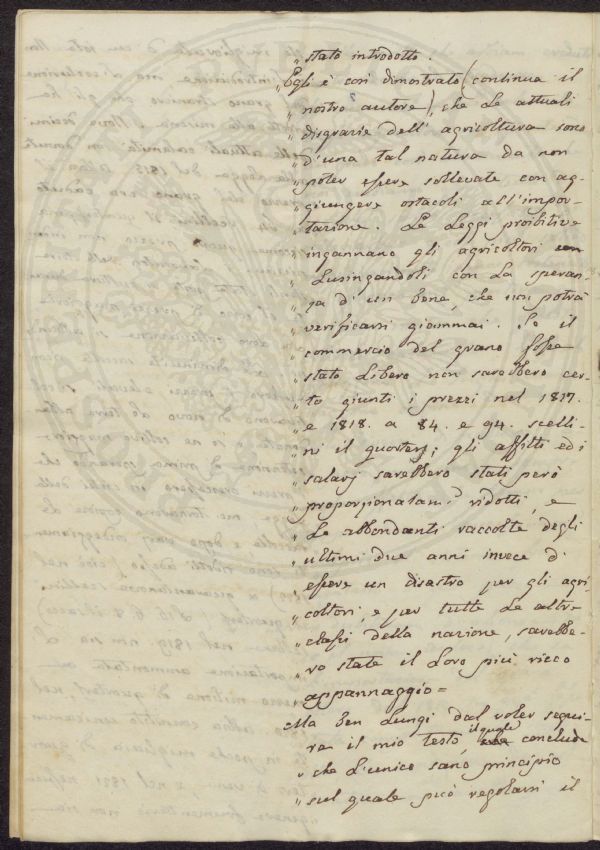 „ stato introdotto.
„ Egli è così dimostrato (continua il
„ nostro autore), che le attuali
„ disgrazie dell'agricoltura sono
„ d'una tal natura da non
„ poter essere sollevate con ag-
„ giungere ostacoli all'impor-
„ tazione. Le Leggi proibitive
„ ingannano gli agricoltori
„ Lusingandoli con La speran-
„ za d'un bene, che non potrà
„ verificarsi giammai. Se il
„ commercio del grano fosse
„ stato Libero non sarebbero cer-
„ to giunti i prezzi nel 1817.
„ e 1818. a 84. e 94. scelli-
„ ni il quarters; gli affitti ed i
„ salarj sarebbero stati però
„ proporzionatam.e ridotti, e
„ Le abbondanti raccolte degli
„ ultimi due anni invece di
„ essere un disastro per gli agri-
„ coltori, e per tutte Le altre
„ classi della nazione, sarebbe-
„ ro state il Loro più ricco
„ appannaggio =
Ma ben Lungi dal voler segui-
re il mio testo, il quale conclude
„ che L'unico sano principio
„ sul quale può regolarsi il